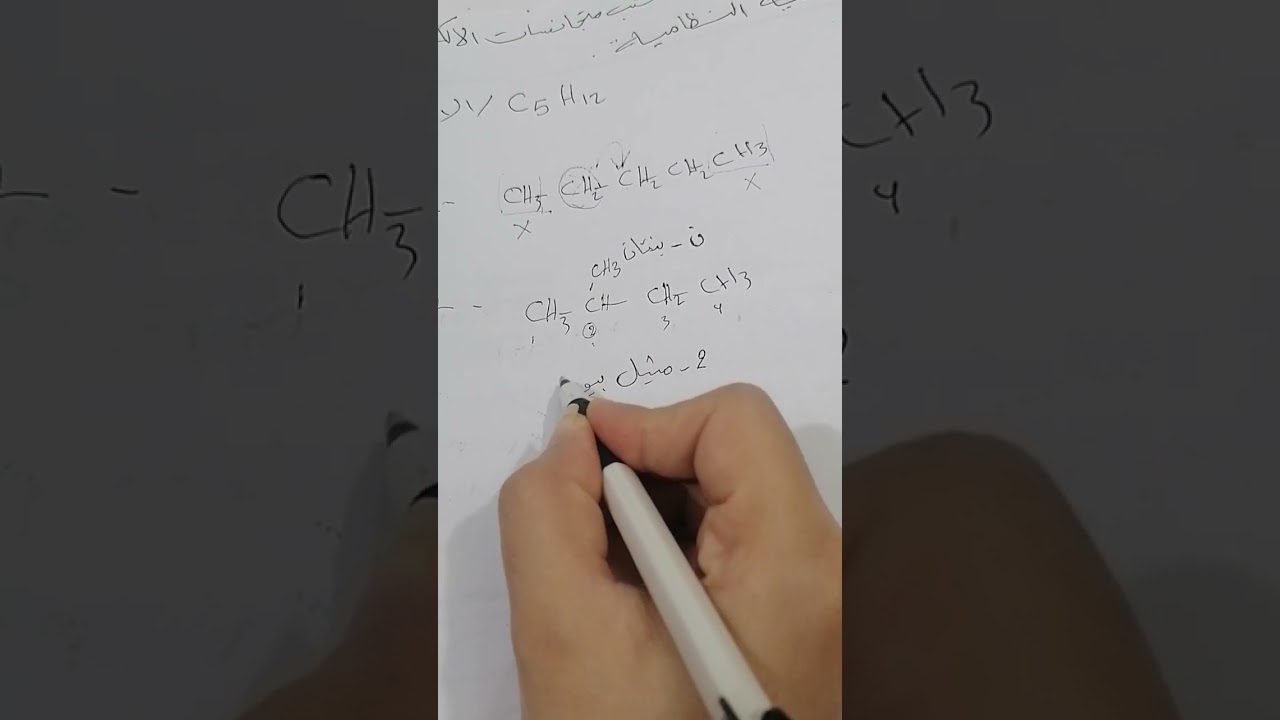 متجانسات
النظامية .
C5H12 /
- CH3 CH2 CH2 CH2 CH3
X X
ن - بنتان
CH3
- CH3 CH CH2 CH3
1 2 3 4
2 - مثيل بيو